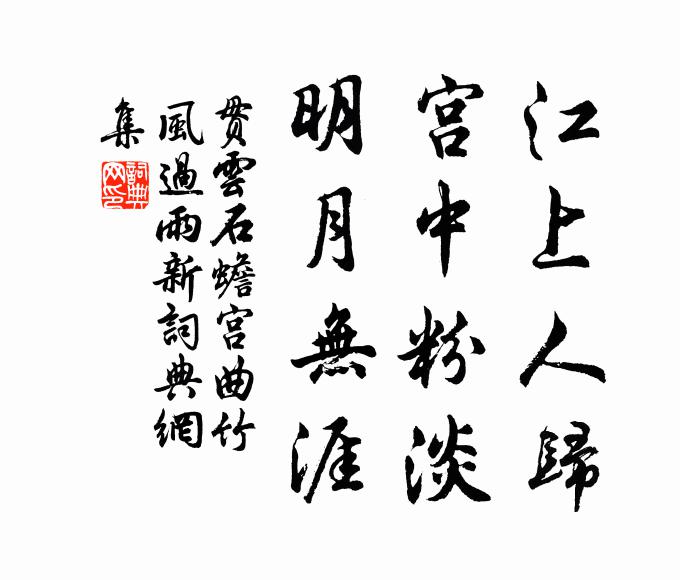 江上人歸
宫中粉淡
明月無涯
貫雲石蟾宫曲竹
風過雨新詞典網
集
詞典
网印